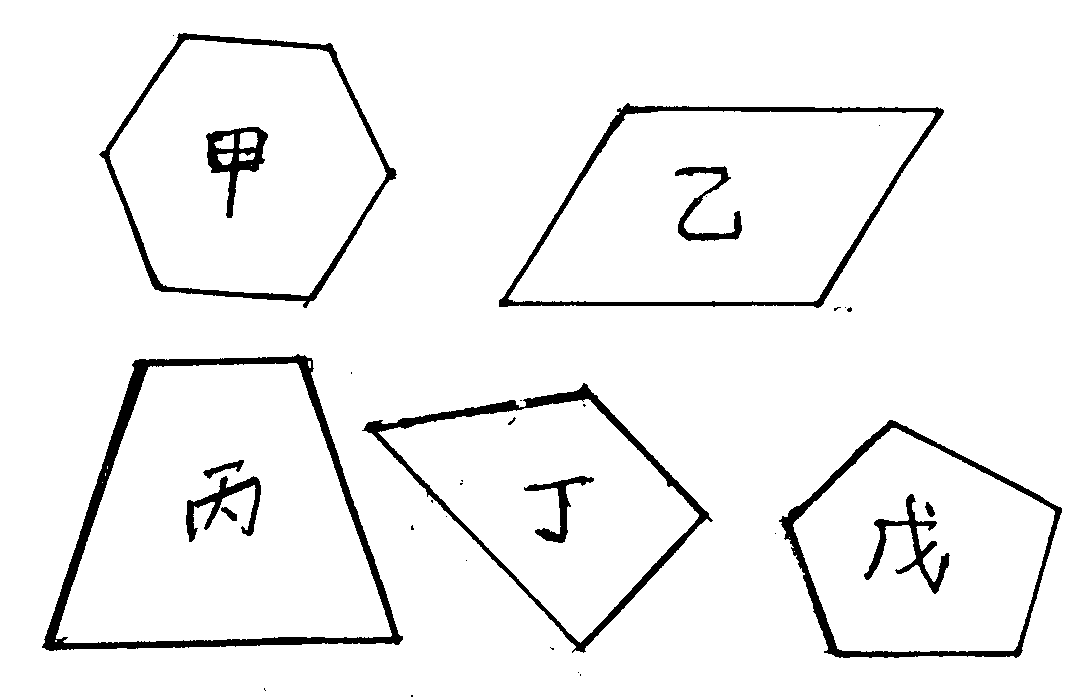 甲
乙
丙
丁
戊